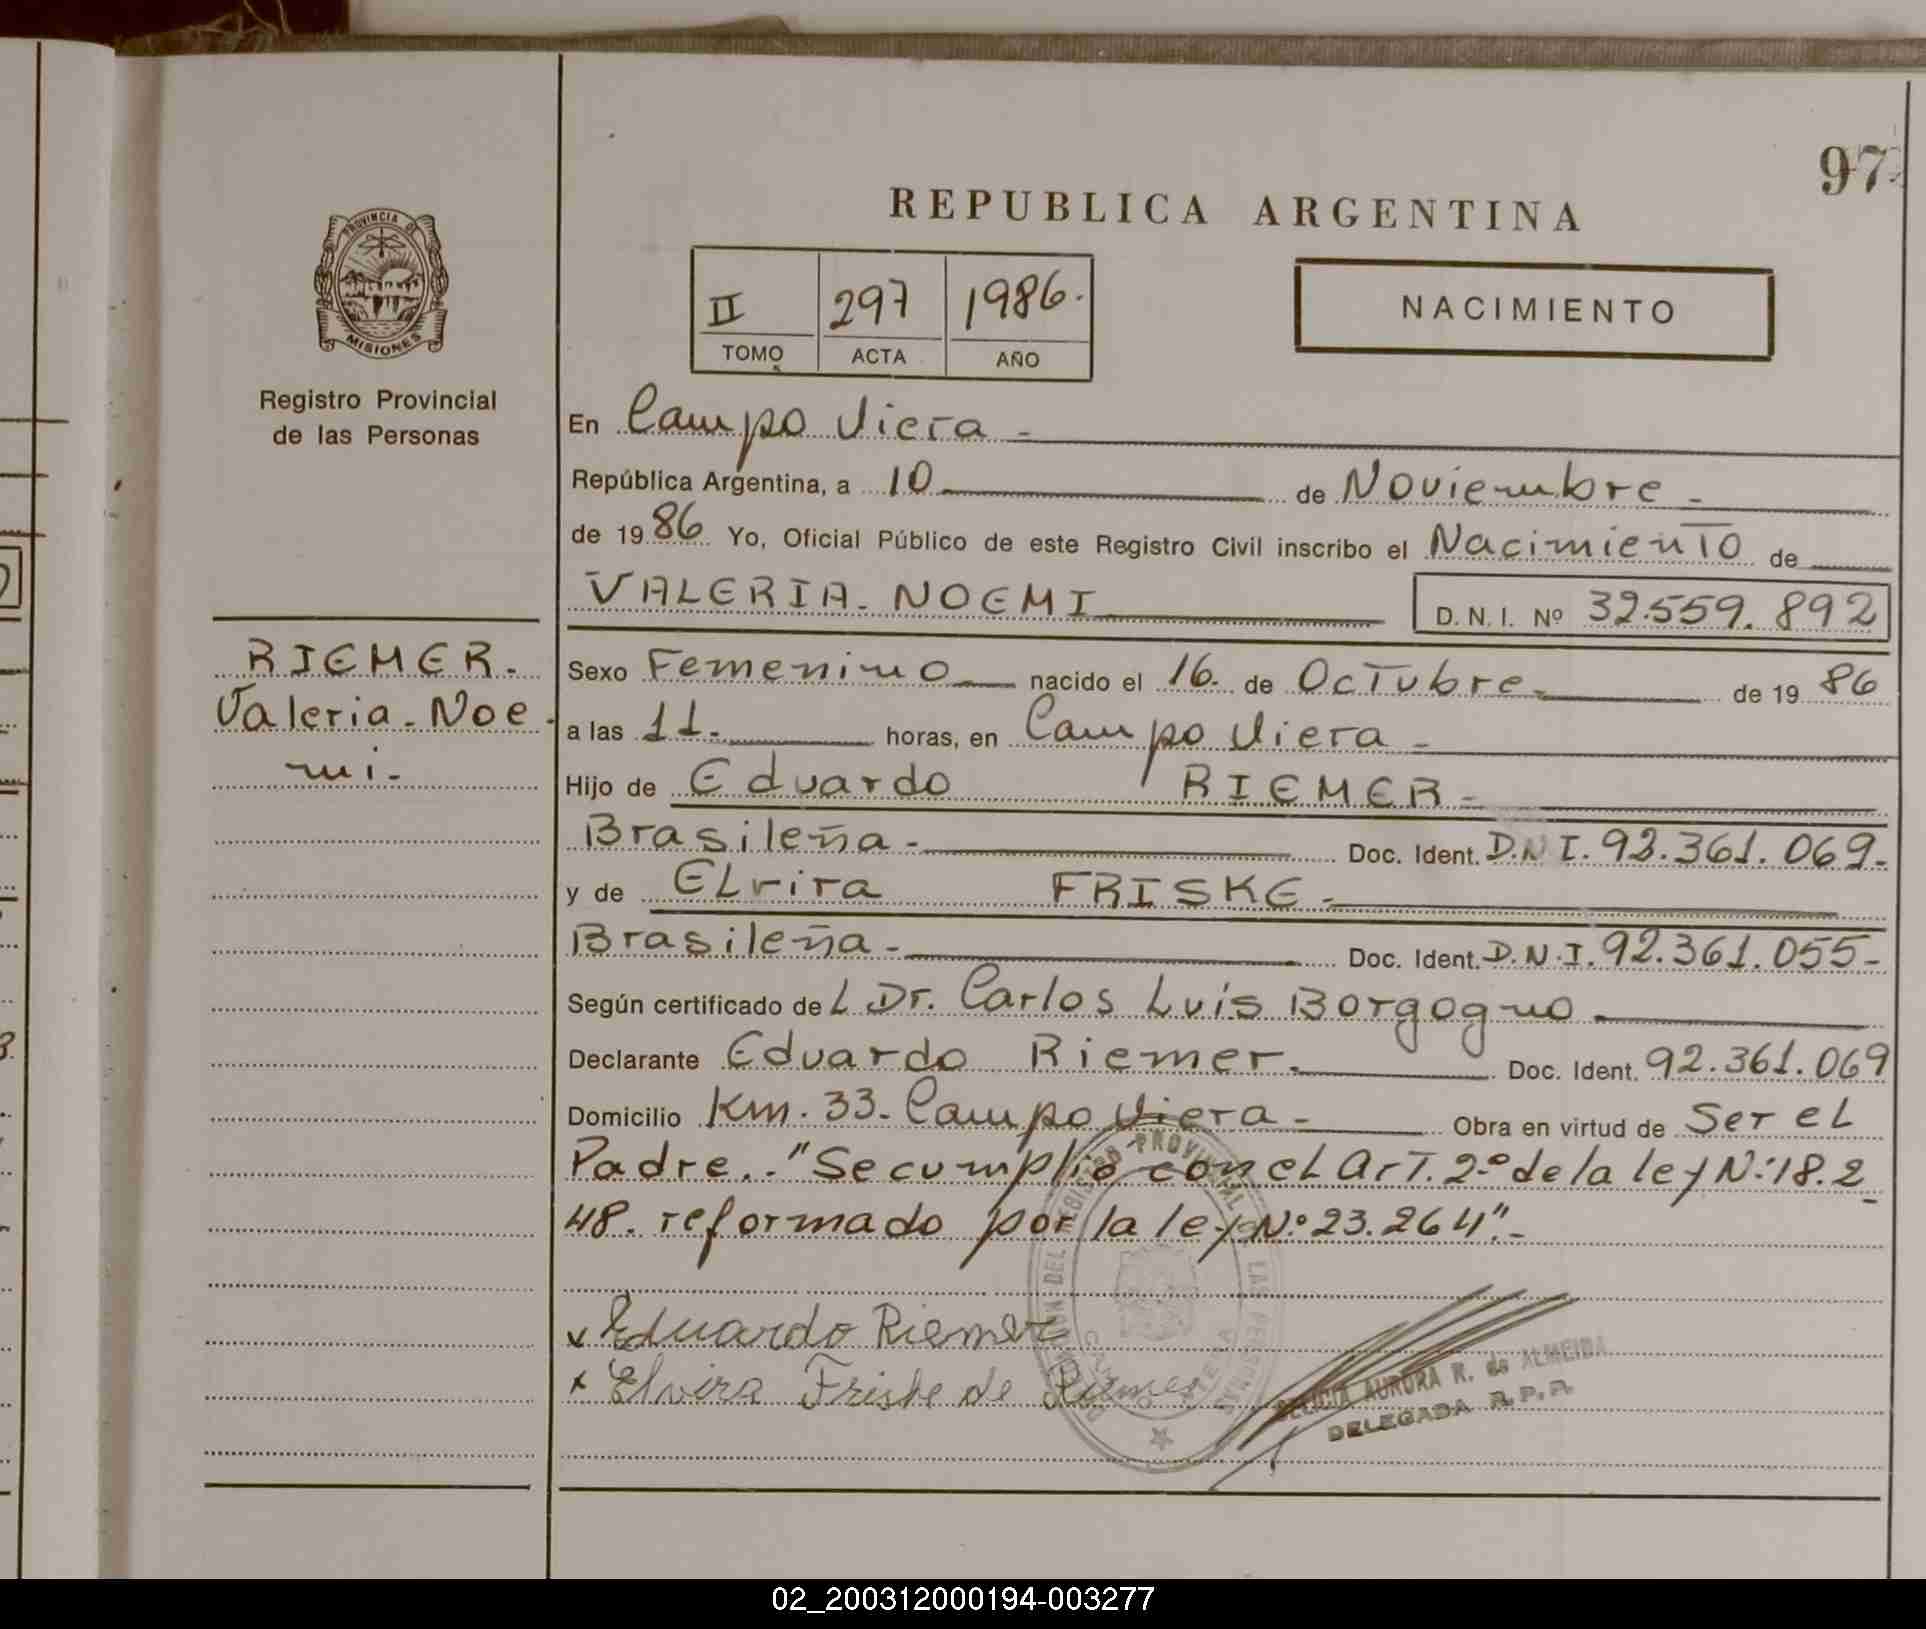 97
REPUBLICA ARGENTINA
PROVINCIA DE
MISIONES
Registro Provincial
de las Personas
II 297 1986.
TOMO ACTA AÑO
NACIMIENTO
En Campo Viera -
República Argentina, a 10 de Noviembre -
de 1986 Yo, Oficial Público de este Registro Civil inscribo el Nacimiento de
VALERIA - NOEMI D.N.I. Nº 32.559.892
RIEMER.
Valeria - Noe
mi -
Sexo Femenino nacido el 16. de Octubre - de 1986
a las 11. horas, en Campo Viera -
Hijo de Eduardo RIEMER -
Brasileña - Doc. Ident. D.N.I. 92.361.069.-
y de ELvira FRISKE -
Brasileña - Doc. Ident. D.N.I. 92.361.055-
Según certificado deL Dr. Carlos Luis Borgogno
Declarante Eduardo Riemer. Doc. Ident. 92.361.069
Domicilio Km. 33 - Campo Viera - Obra en virtud de Ser eL
Padre.. "Se cumplio con eL ArT. 2º de la ley Nº 18.2
48. reformado por la ley Nº 23.264".-
x Eduardo Riemer
x Elvira Friske de Riemer
AURORA R. de ALMEIDA
DELEGADA R.P.P.
02_200312000194-003277